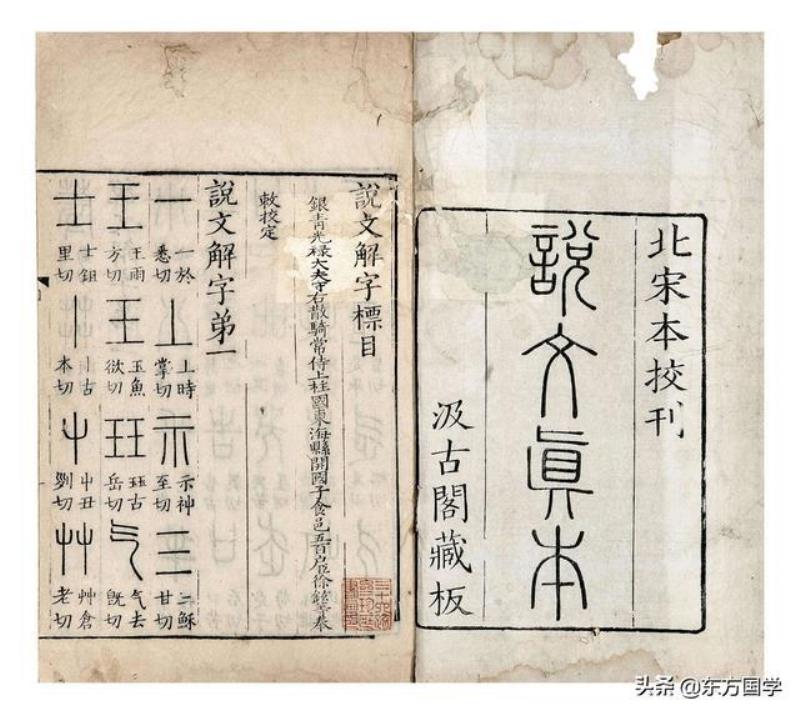 北宋本挍刊
說文眞本
汲古閣藏板
說文解字標目
銀青光祿大夫守右散騎常侍上柱國東海縣開國子食邑五百户臣徐鉉等奉
敕挍定
說文解字弟一
一 一於悉切 丄 上時掌切 示 示神至切 三 三穌甘切
王 王雨方切 王 玉魚欲切 玨 玨古岳切 气 气去旣切
士 士鉏里切 丨 丨古本切 屮 屮丑列切 艸 艸倉老切
头条 @东方国学